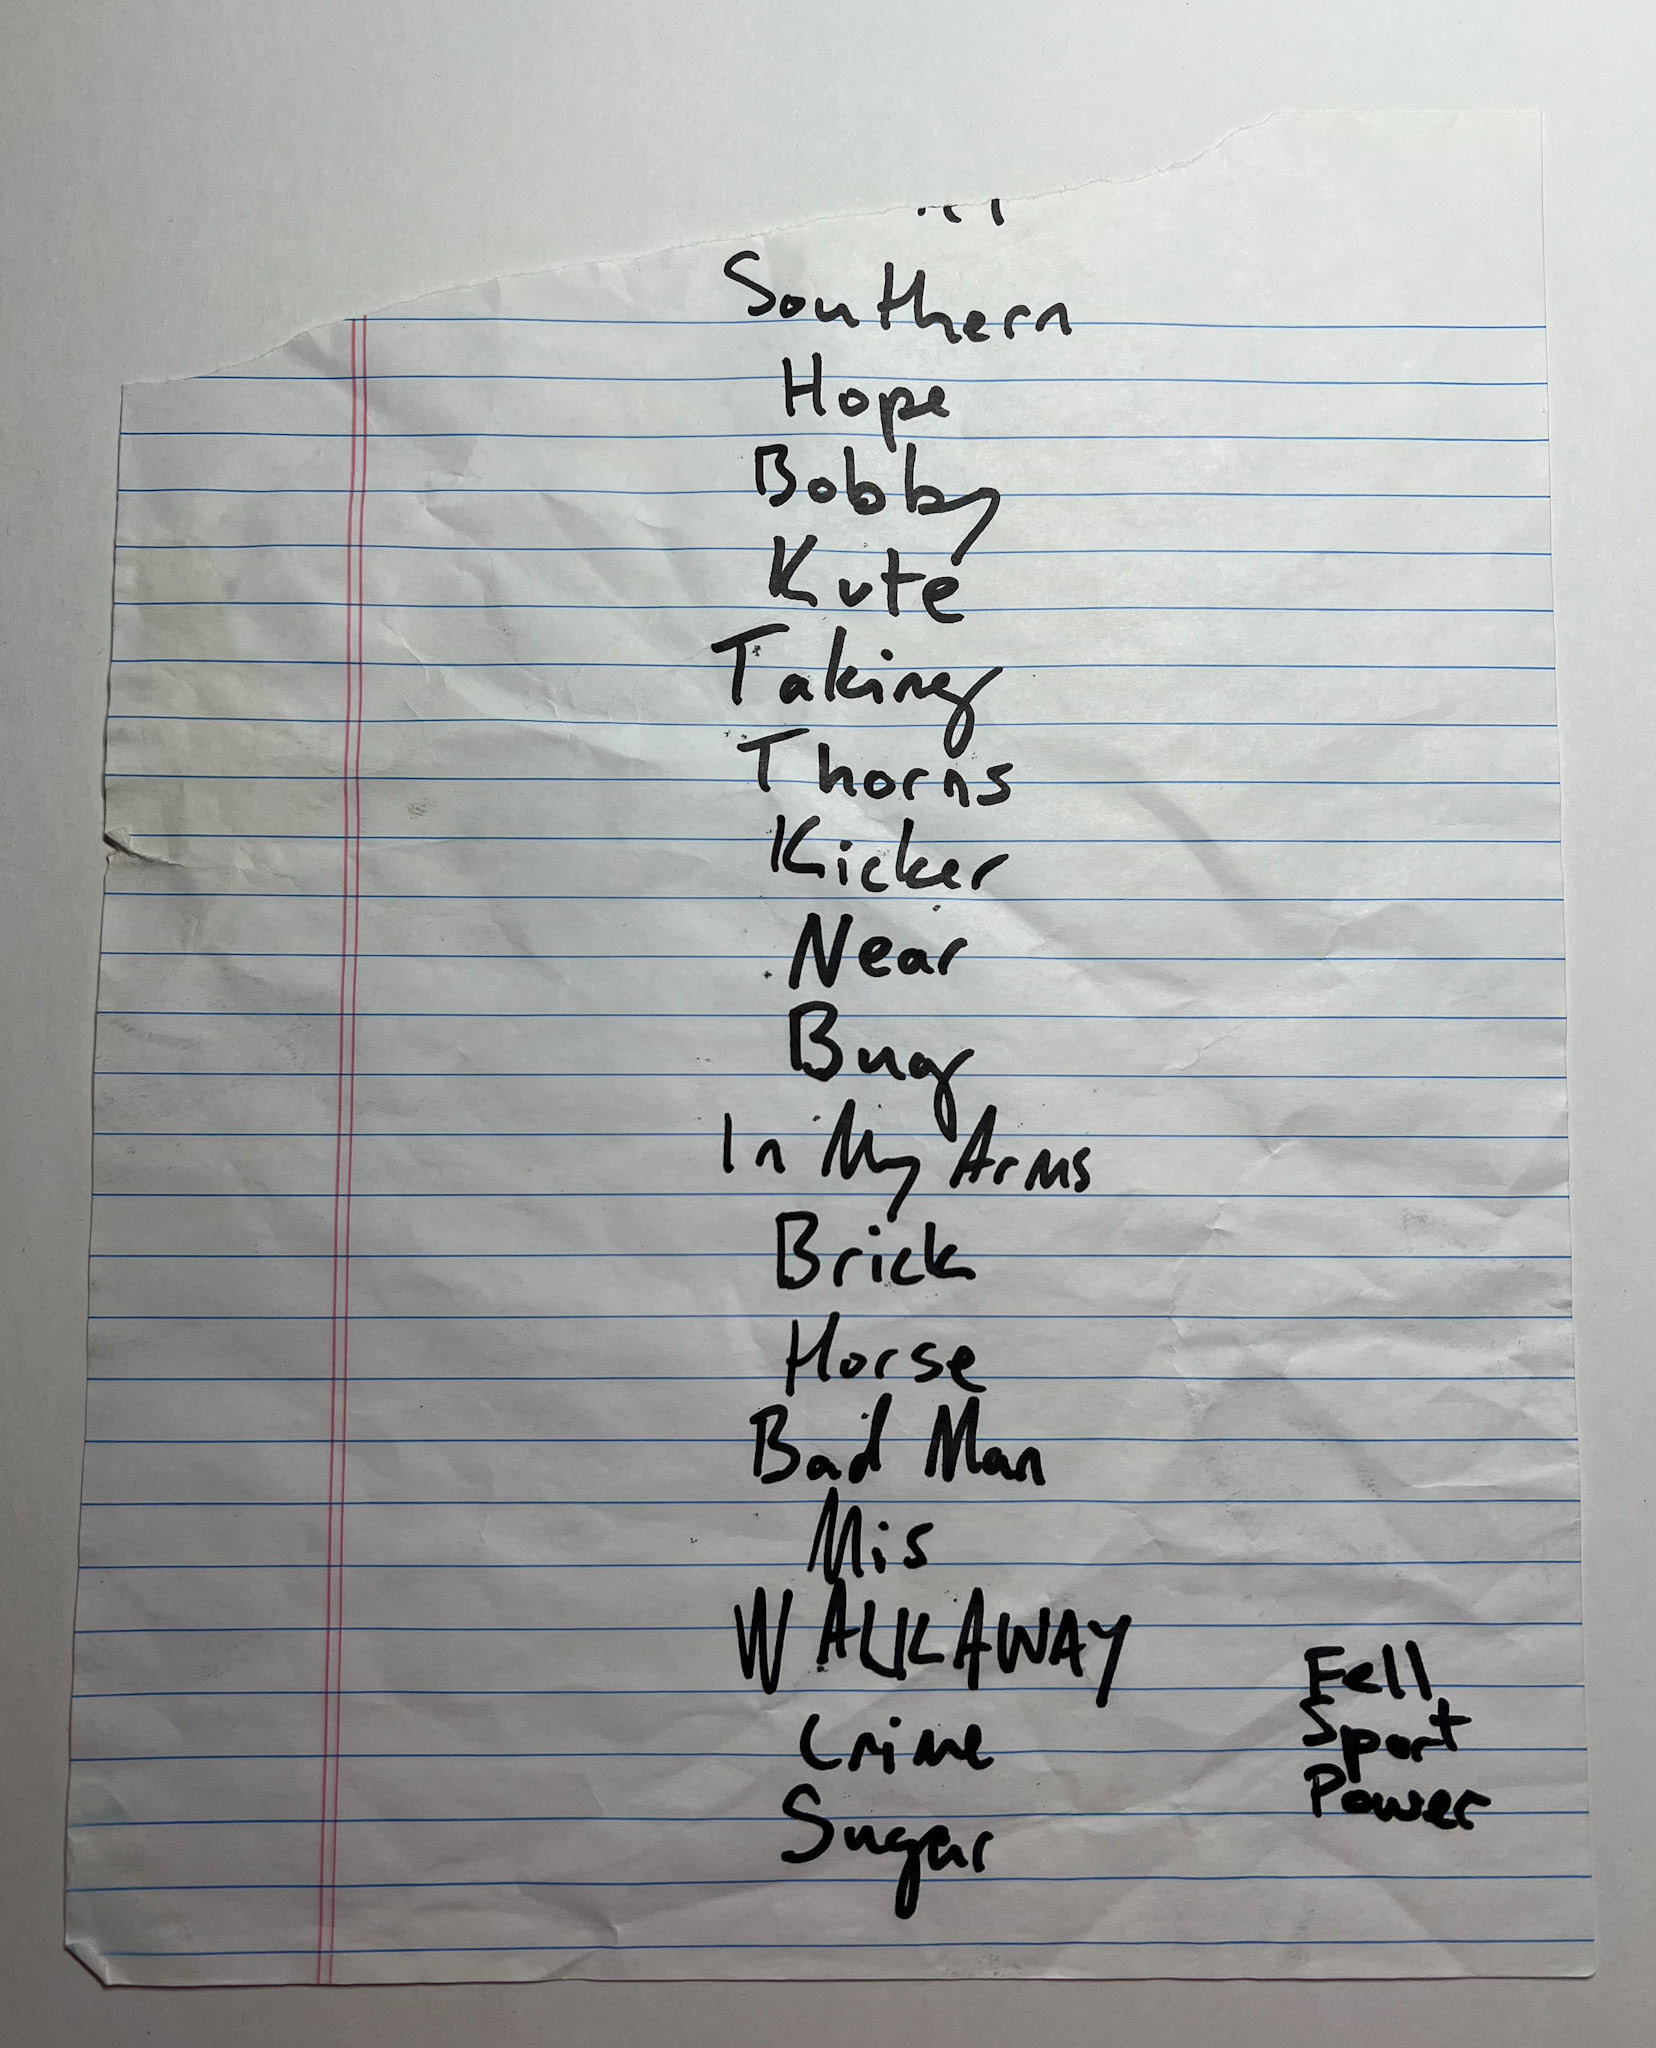 Southern
Hope
Bobby
Kute
Taking
Thorns
Kicker
Near
Bug
In My Arms
Brick
Horse
Bad Man
Mis
WALKAWAY
Crime
Sugar
Fell
Sport
Power